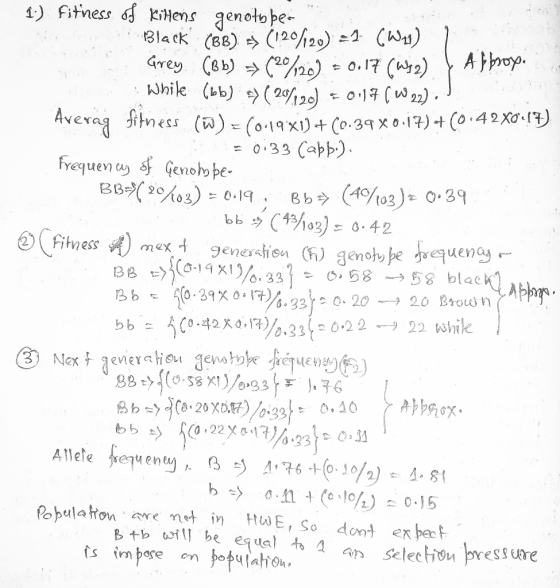 1.) Fitness of Kittens genotype-
Black (BB) => (120/120) = 1 (W11)
Grey (Bb) => (20/120) = 0.17 (W12) } Approp.
While (bb) => (20/120) = 0.17 (W22).
Averag fitness (W̅) = (0.19x1) + (0.39 x 0.17) + (0.42 x 0.17)
= 0.33 (app.).
Frequency of Genotype-
BB => (20/103) = 0.19, Bb => (40/103) = 0.39
bb => (43/103) = 0.42
② (Fitness) next generation (F1) genotype frequency -
BB => {(0.19x1)/0.33} = 0.58 → 58 black
Bb = {(0.39 x 0.17)/0.33} = 0.20 → 20 Brown } Approx.
bb = {(0.42 x 0.17)/0.33} = 0.22 → 22 while
③ Next generation genotype frequency (F2)
BB => {(0.58x1)/0.33} = 1.76
Bb => {(0.20 x 0.17)/0.33} = 0.10 } Approx.
bb => {(0.22 x 0.17)/0.33} = 0.11
Allele frequency, B => 1.76 + (0.10/2) = 1.81
b => 0.11 + (0.10/2) = 0.15
Population are not in HWE, So dont expect
B + b will be equal to 1 as selection pressure
is impose on population.